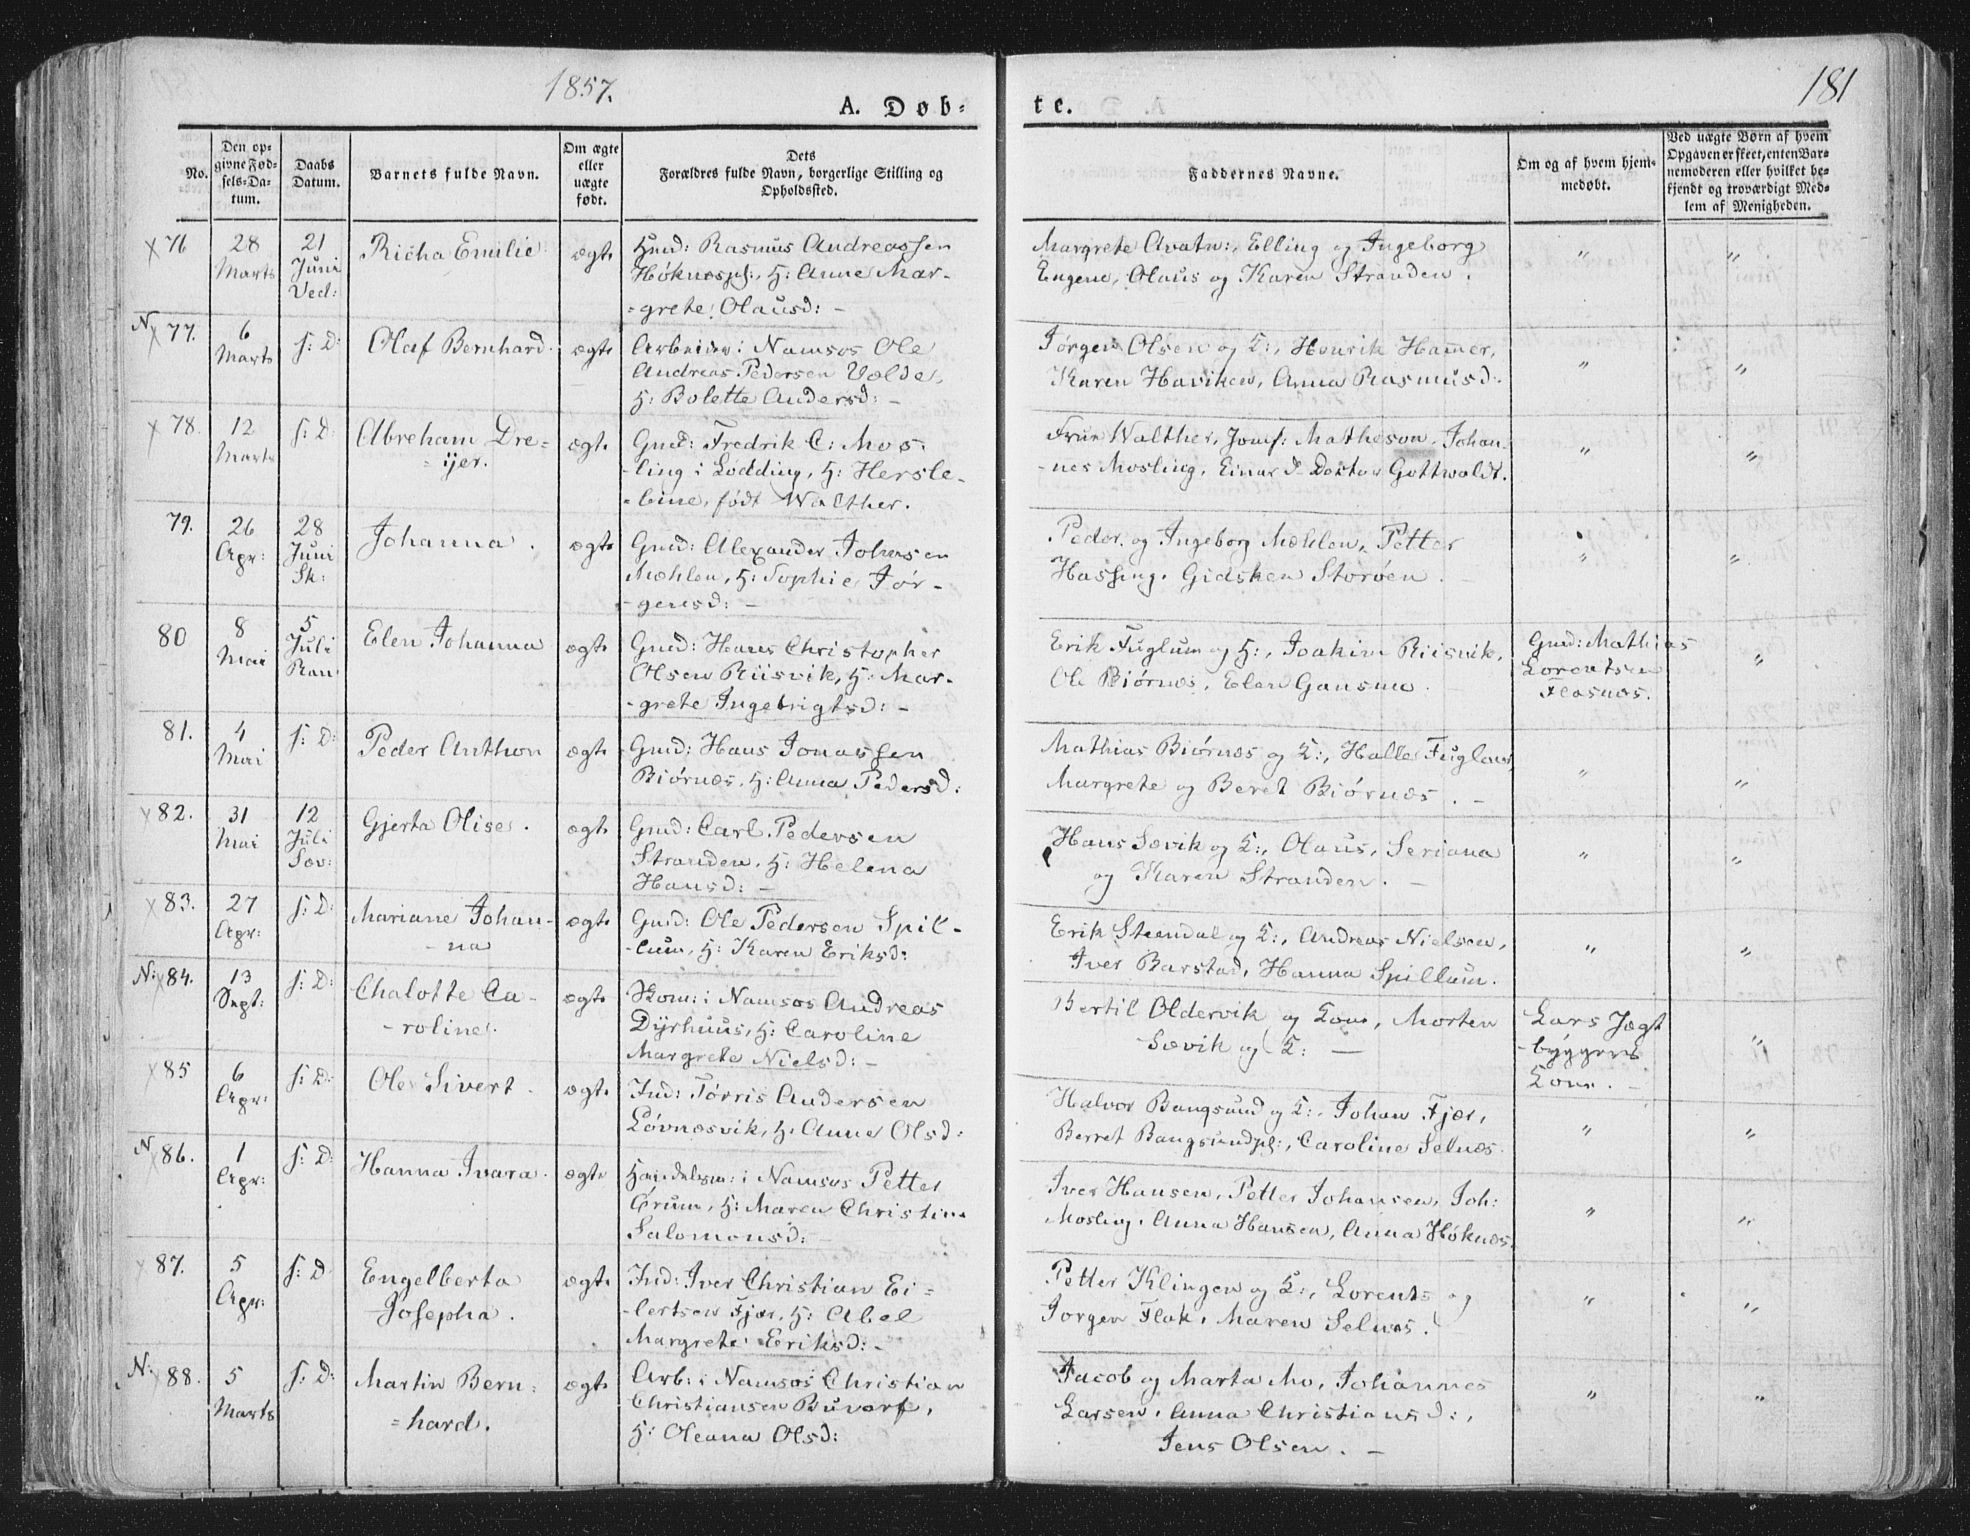 1857.
181
A. Døb-
te.
No.
Den op-
givne Fød-
sels-Da-
tum.
Daabs
Datum.
Barnets fulde Navn.
Om ægte
eller
uægte
født.
Dets
Forældres fulde Navn, borgerlige Stilling og
Opholdssted.
Faddernes Navne.
Om og af hvem hjem-
medøbt.
Ved uægte Børn af hvem
Opgaven er skeet, enten Bar-
nemoderen eller hvilket be-
kjendt og troværdigt Med-
lem af Menigheden.
x 76
28
Marts
21
Juni
Ved:
Richa Emilie
ægte
Huusd: Rasmus Andreassen
Høknæspl:, H: Anne Mar-
-grete Olausd: -
Margrete Avatn:, Elling og Ingeborg
Engene, Olaus og Karen Stranden.
"
"
N x 77.
6
Marts
s: D:
Olaf Bernhard
ægte
Arbeider i Namsos Ole
Andreas Pedersen Volde,
H: Bolette Andersd: -
Jørgen Olsen og K:, Henrik Hammer,
Karen Haviken, Anna Rasmusd:
"
"
x 78.
12
Marts
s: D:
Abreham Dre=
=ijer.
ægte
Gmd: Fredrik C: Mos-
-ling i Lødding, H: Hersle-
-bine, født Walther.
Frue Walther, Jomf: Matheson, Johan-
-nes Mosling, Einar & Doctor Gottwaldt.
"
"
79.
26
Apr:
28
Juni
Sk:
Johanna.
ægte
Gmd: Alexander Johnsen
Mæhlen, H: Sophie Jør-
-gensd: -
Peder og Ingeborg Mæhlen, Petter
Hassing, Gidsken Storøen.
"
"
80
8
Mai
5
Juli
Ran
Elen Johanna
ægte
Gmd: Hans Christopher
Olsen Riisvik, H: Mar-
-grete Ingebrigtsd: -
Erik Fuglum og H:, Joakim Riisvik,
Ole Biørnes, Elen Gansmo.
Gmd: Mathias
Lorentsen
Flasnæs.
"
81.
4
Mai
s: D:
Peder Anthon
ægte
Gmd: Hans Jonassen
Biørnæs, H: Anna Pedersd:
Mathias Biørnæs og K:, Halle Fuglum,
Margrete og Beret Biørnæs. -
"
"
x 82.
31
Mai
12
Juli
Sæv:
Gjerta Olise.
ægte
Gmd: Carl Pedersen
Stranden, H: Helena
Hansd: -
Hans Sævik og K:, Olaus, Seriana
og Karen Stranden. -
"
"
x 83.
27
Apr:
s: D:
Mariane Johan-
-na
ægte
Gmd: Ole Pedersen Spil-
-lum, H: Karen Eriksd:
Erik Steendal og K:, Andreas Nielsen,
Iver Barstad, Hanna Spillum.
"
"
N: x 84.
13
Sept:
s: D:
Chalotte Ca-
-roline.
ægte
Kom: i Namsos Andreas
Dÿrhuus, H: Caroline
Margrete Nielsd: -
Bertil Oldervik og Kone, Morten
Sævik og K: -
Lars Jægt
-byggers
Kone. -
"
x 85
6
Apr:
s: D:
Ole Sivert.
ægte
Ind: Tørris Andersen
Løvnæsvik, H: Anne Olsd:
Halvor Bangsund og K:, Johan Fjær,
Berret Bangsundpl:, Caroline Selnæs.
"
"
N x 86.
1
Apr:
s: D:
Hanna Ivara.
ægte
Handelsm: i Namsos Petter
Ørum, H: Maren Christine
Salomonsd: -
Iver Hansen, Petter Johansen, Joh:
Mosling, Anna Hansen, Anna Høknæs.
"
"
x 87.
5
Apr:
s: D.
Engelberta
Josepha.
ægte
Ind: Iver Christian Ei-
-lertsen Fjær, H: Abel
Margrete Eriksd: -
Petter Klingen og K:, Lorents og
Jørgen Flak, Maren Selnæs.
"
"
N: x 88.
5
Marts
s: D:
Martin Bern=
=hard.
ægte
Arb: i Namsos Christian
Christiansen Buvarp,
H: Oleana Olsd:
Jacob og Marta Mo, Johannes
Larsen, Anna Christiansd:,
Jens Olsen. -
"
"